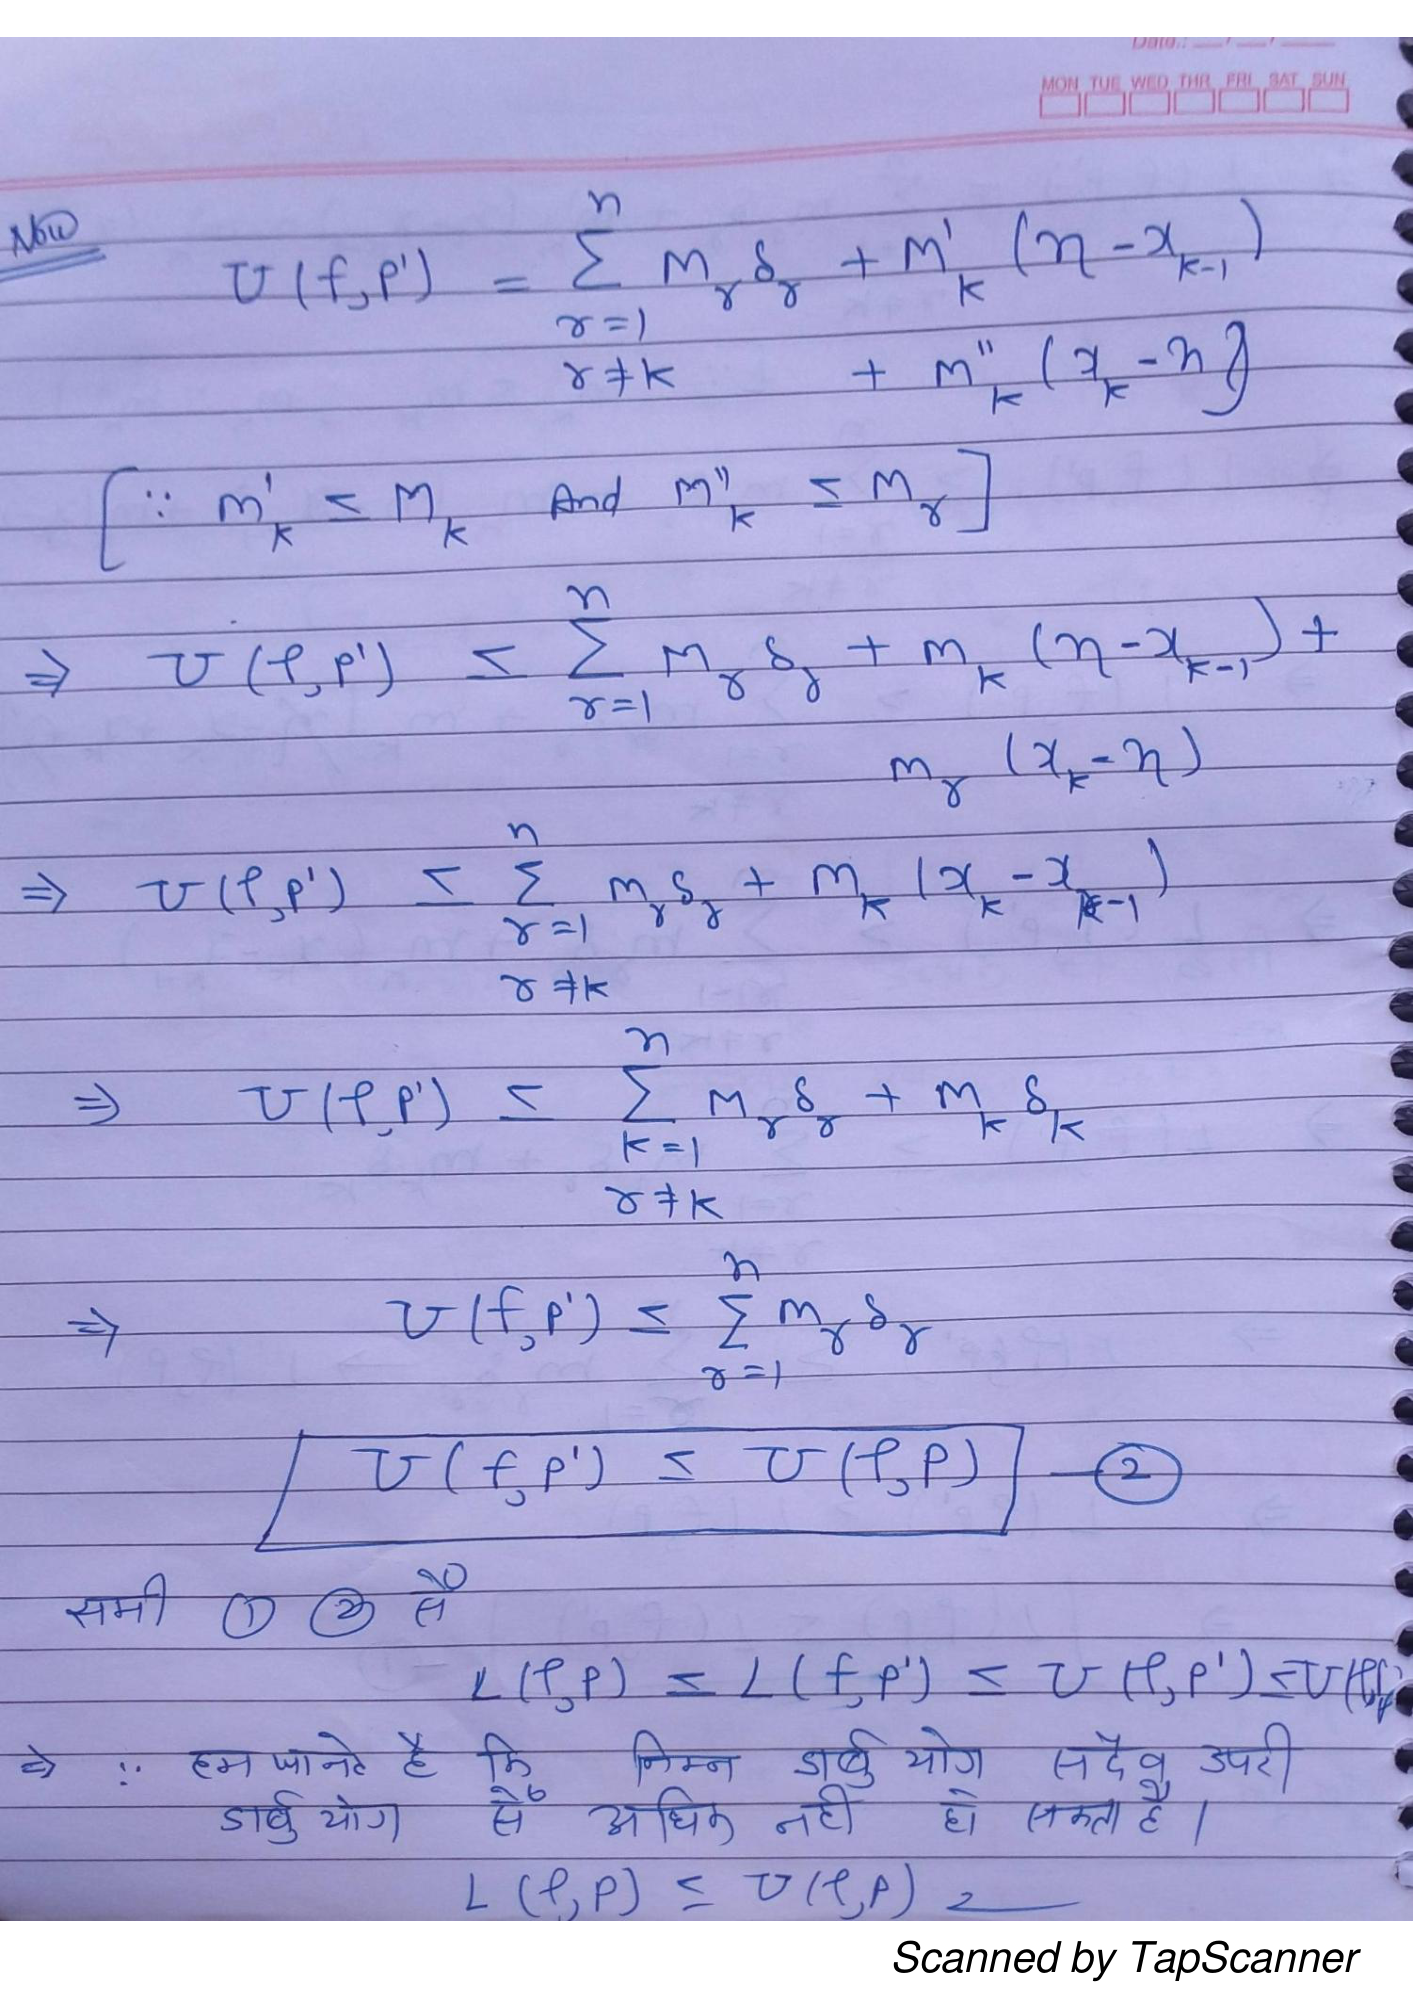 Date.: __/__/__
MON TUE WED THR FRI SAT SUN
Now
U(f,P') = Σ_{r=1, r≠k}^{n} M_r δ_r + M'_k (η - x_{k-1})
+ M''_k (x_k - η)
[∵ M'_k ≤ M_k And M''_k ≤ M_r]
⇒ U(f,P') ≤ Σ_{r=1}^{n} M_r δ_r + M_k (η - x_{k-1}) +
M_r (x_k - η)
⇒ U(f,P') ≤ Σ_{r=1, r≠k}^{n} M_r δ_r + M_k (x_k - x_{k-1})
⇒ U(f,P') ≤ Σ_{k=1, r≠k}^{n} M_r δ_r + M_k δ_k
⇒ U(f,P') ≤ Σ_{r=1}^{n} M_r δ_r
U(f,P') ≤ U(f,P) — ②
समी ① ② से
L(f,P) ≤ L(f,P') ≤ U(f,P') ≤ U(f,
⇒ ∵ हम जानते है कि निम्न डार्बु योग सदैव उपरी
डार्बु योग से अधिक नही हो सकता है।
L(f,P) ≤ U(f,P)
Scanned by TapScanner